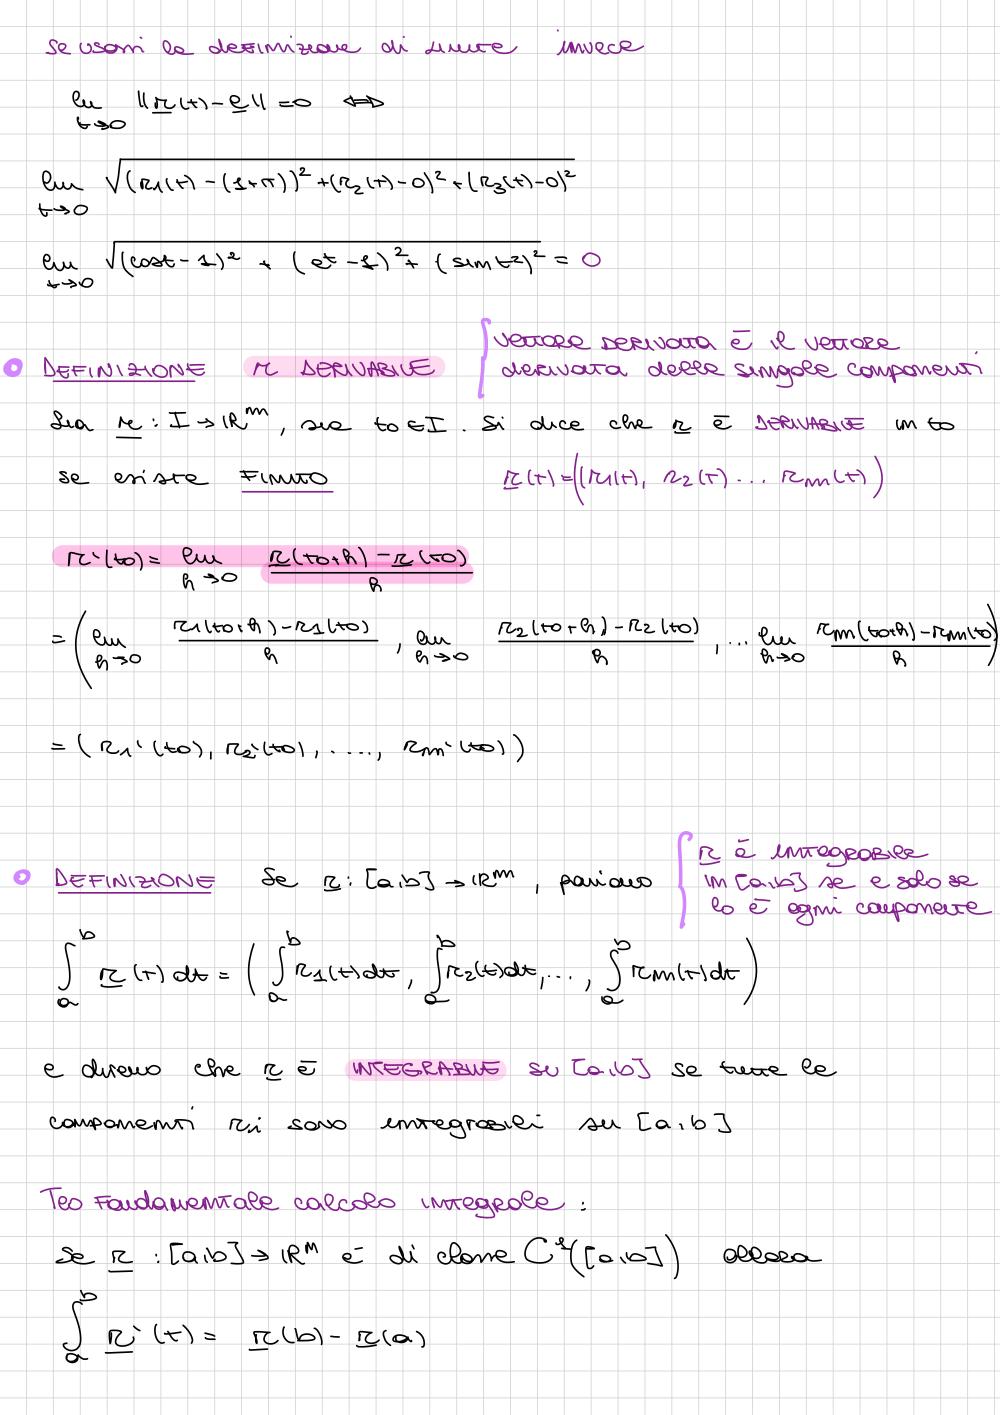 se usoni la definizione di limite invece
lim t→0 ||r(t) - e|| = 0 ⇔
lim t→0 √((r1(t) - (1+π))² + (r2(t) - 0)² + (r3(t) - 0)²
lim t→0 √((cost - 1)² + (e^t - 1)² + (sin t²)² = 0
DEFINIZIONE r DERIVABILE
vettore derivata è il vettore
derivata delle singole componenti
Sia r : I → ℝ^m, sia t0 ∈ I. Si dice che r è DERIVABILE in t0
se esiste FINITO
r(t) = (r1(t), r2(t) ... rm(t))
r'(t0) = lim h→0 (r(t0+h) - r(t0))/h
= (lim h→0 (r1(t0+h) - r1(t0))/h , lim h→0 (r2(t0+h) - r2(t0))/h , ... lim h→0 (rm(t0+h) - rm(t0))/h)
= (r1'(t0), r2'(t0), ...., rm'(t0))
r è integrabile
in [a,b] se e solo se
lo è ogni componente
DEFINIZIONE Se r : [a,b] → ℝ^m, poniamo
∫_a^b r(t) dt = (∫_a^b r1(t)dt, ∫_a^b r2(t)dt, ..., ∫_a^b rm(t)dt)
e diremo che r è INTEGRABILE su [a,b] se tutte le
componenti ri sono integrabili su [a,b]
Teo Fondamentale calcolo integrale :
Se r : [a,b] → ℝ^m è di classe C¹([a,b]) allora
∫_a^b r'(t) = r(b) - r(a)